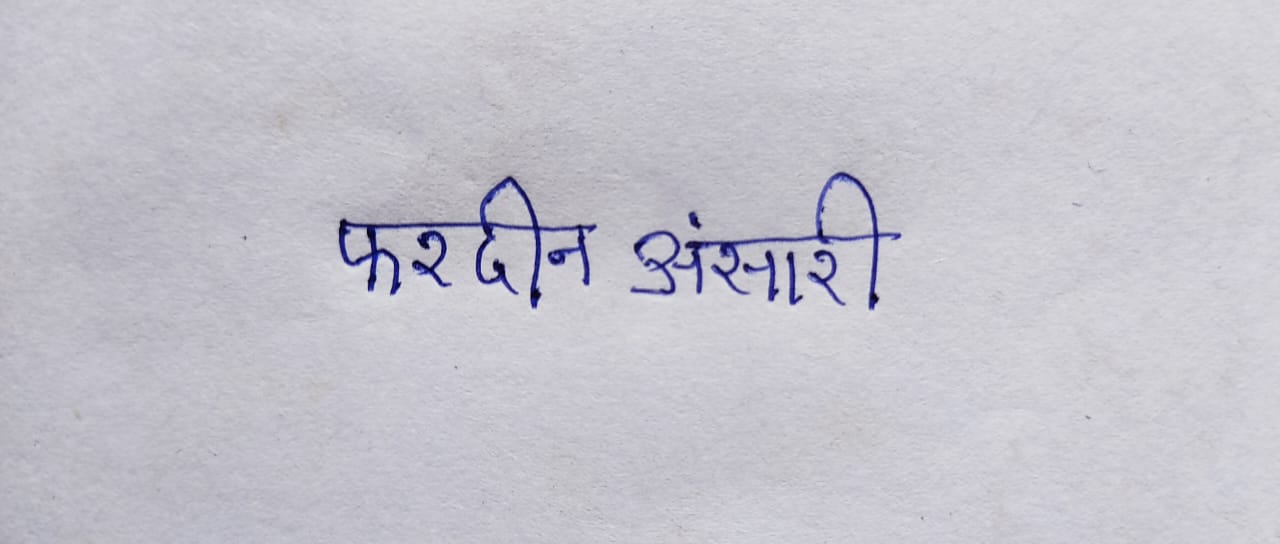 फरदीन अंसारी